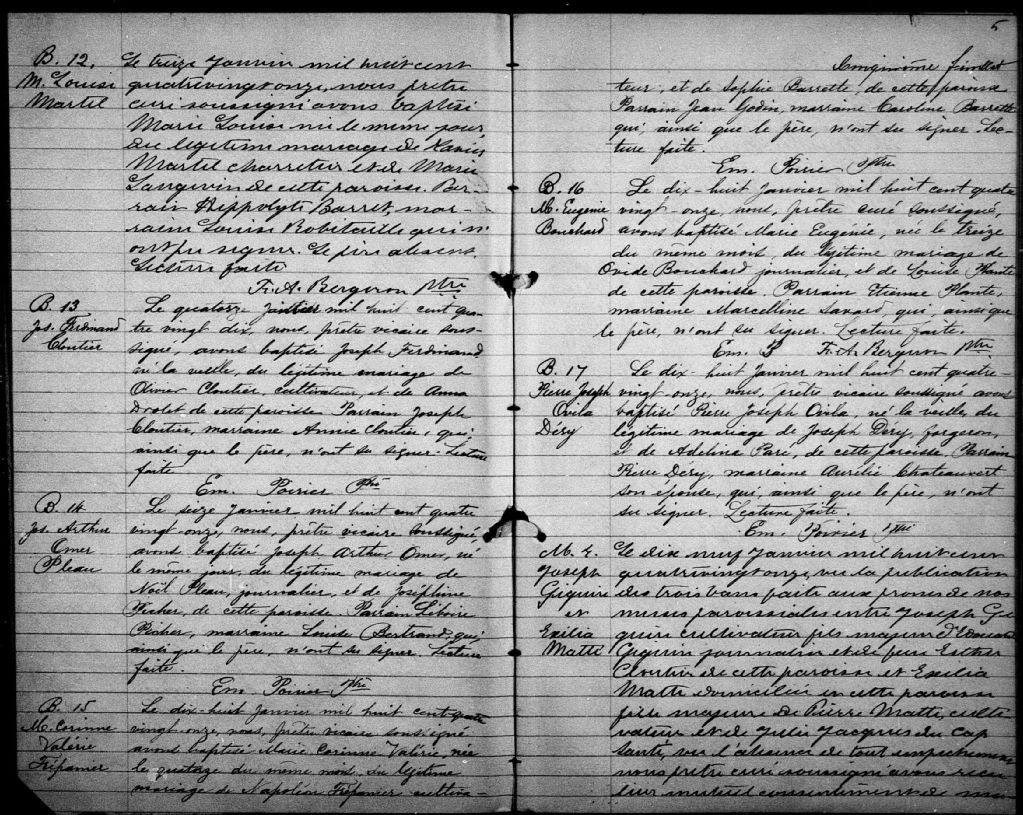 B. 12.
M. Louise
Martel
Le treize Janvier mil huit cent
quatrevingt onze, nous prêtre
curé soussigné avons baptisé
Marie Louise née le même jour
du légitime mariage de Xavier
Martel charretier et de Marie
Langevin de cette paroisse. Par-
rain Hippolyte Barret, mar-
raine Louise Robitaille qui n'
ont pu signer. Le père absent.
Lecture faite
F. A. Bergeron Ptre
B. 13
Jos. Ferdinand
Cloutier
Le quatorze janvier mil huit cent qua-
tre vingt dix, nous, prêtre vicaire sous-
signé, avons baptisé Joseph Ferdinand
né la veille, du légitime mariage de
Olivier Cloutier, cultivateur, et de Anna
Drolet de cette paroisse Parrain Joseph
Cloutier, marraine Annie Cloutier, qui
ainsi que le père, n'ont su signer. Lecture
faite
Em. Poirier Ptre
B. 14
Jos. Arthur
Omer
Pleau
Le seize Janvier mil huit cent quatre
vingt-onze, nous, prêtre vicaire soussigné,
avons baptisé Joseph Arthur Omer, né
le même jour, du légitime mariage de
Noël Pleau, journalier, et de Joséphine
Picher, de cette paroisse Parrain Liboire
Picher, marraine Louise Bertrand, qui
ainsi que le père, n'ont su signer. Lecture
faite.
Em. Poirier Ptre
B. 15
M. Corinne
Valérie
Trépanier
Le dix-huit Janvier mil huit cent quatre
vingt onze, nous, prêtre vicaire soussigné
avons baptisé Marie Corinne Valérie née
le quatorze du même mois, du légitime
mariage de Napoléon Trépanier cultiva-
5
Cinquième feuillet
teur, et de Sophie Barrette, de cette paroisse
Parrain Jean Godin, marraine Caroline Barrette
qui, ainsi que le père, n'ont su signer. Lec-
ture faite.
Em. Poirier Ptre
B. 16
M. Eugenie
Bouchard
Le dix-huit Janvier mil huit cent quatre
vingt-onze, nous, prêtre curé soussigné,
avons baptisé Marie Eugenie, née le treize
du même mois, du légitime mariage de
Ovide Bouchard journalier, et de Louise Plante
de cette paroisse. Parrain Etienne Plante,
marraine Marcelline Savard, qui, ainsi que
le père, n'ont su signer. Lecture faite.
Em. P F. A. Bergeron Ptre
B. 17
Pierre Joseph
Ovila
Déry
Le dix-huit Janvier mil huit cent quatre-
vingt-onze, nous, prêtre vicaire soussigné avons
baptisé Pierre Joseph Ovila, né la veille, du
légitime mariage de Joseph Déry, forgeron,
et de Adelina Paré, de cette paroisse. Parrain
Pierre Déry, marraine Aurélie Chateauvert
son épouse, qui, ainsi que le père, n'ont
su signer. Lecture faite.
Em. Poirier Ptre
M. 2.
Joseph
Giguère
et
Exilia
Matte
Le dix neuf Janvier mil huit cent
quatrevingt onze, vu la publication
des trois bans faite aux prones de nos
messes paroissiales entre Joseph Gi-
guère cultivateur fils majeur d'Edouard
Giguère journalier et de feue Esther
Cloutier de cette paroisse et Exilia
Matte domiciliée en cette paroisse
fille majeure de Pierre Matte, culti-
vateur et de Julie Jacques du Cap
Santé, vu l'absence de tout empêchement
nous prêtre curé soussigné avons reçu
leur mutuel consentement de ma-